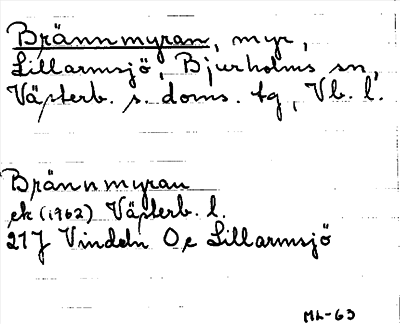 Brännmyran, myr,
Lillarmsjö, Bjurholms sn,
Västerb. s. doms. tg, Vb. l.
Brännmyran
ek (1962) Västerb. l.
21J Vindeln Oe Lillarmsjö
ML-63